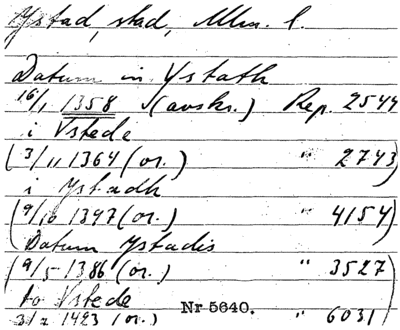 Ystad, stad, Mlm. l.
Datum in Ystath
16/1 1358 (avskr.) Rep. 2544
i Vstede
(3/11 1364 (or.) " 2743)
i Ystadh
(9/10 1397 (or.) " 4154)
Datum Ystadis
(9/5 1386 (or.) " 3527)
to Vstede Nr 5640.
3/7 1423 (or.) " 6031